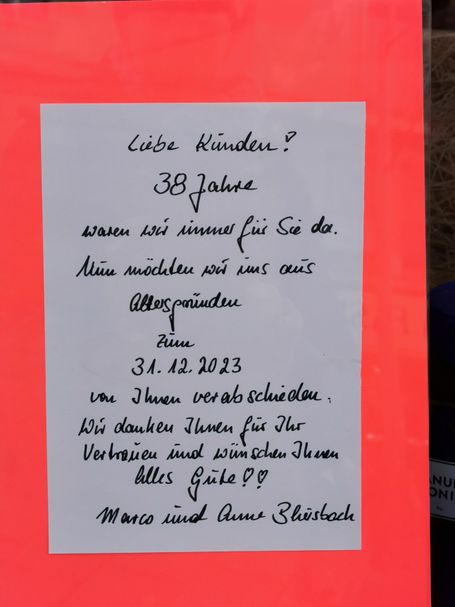 Liebe Kunden!
38 Jahre
waren wir immer für Sie da.
Nun möchten wir uns aus
Altersgründen
zum
31.12.2023
von Ihnen verabschieden.
Wir danken Ihnen für Ihr
Vertrauen und wünschen Ihnen
Alles Gute
Marco und Anne